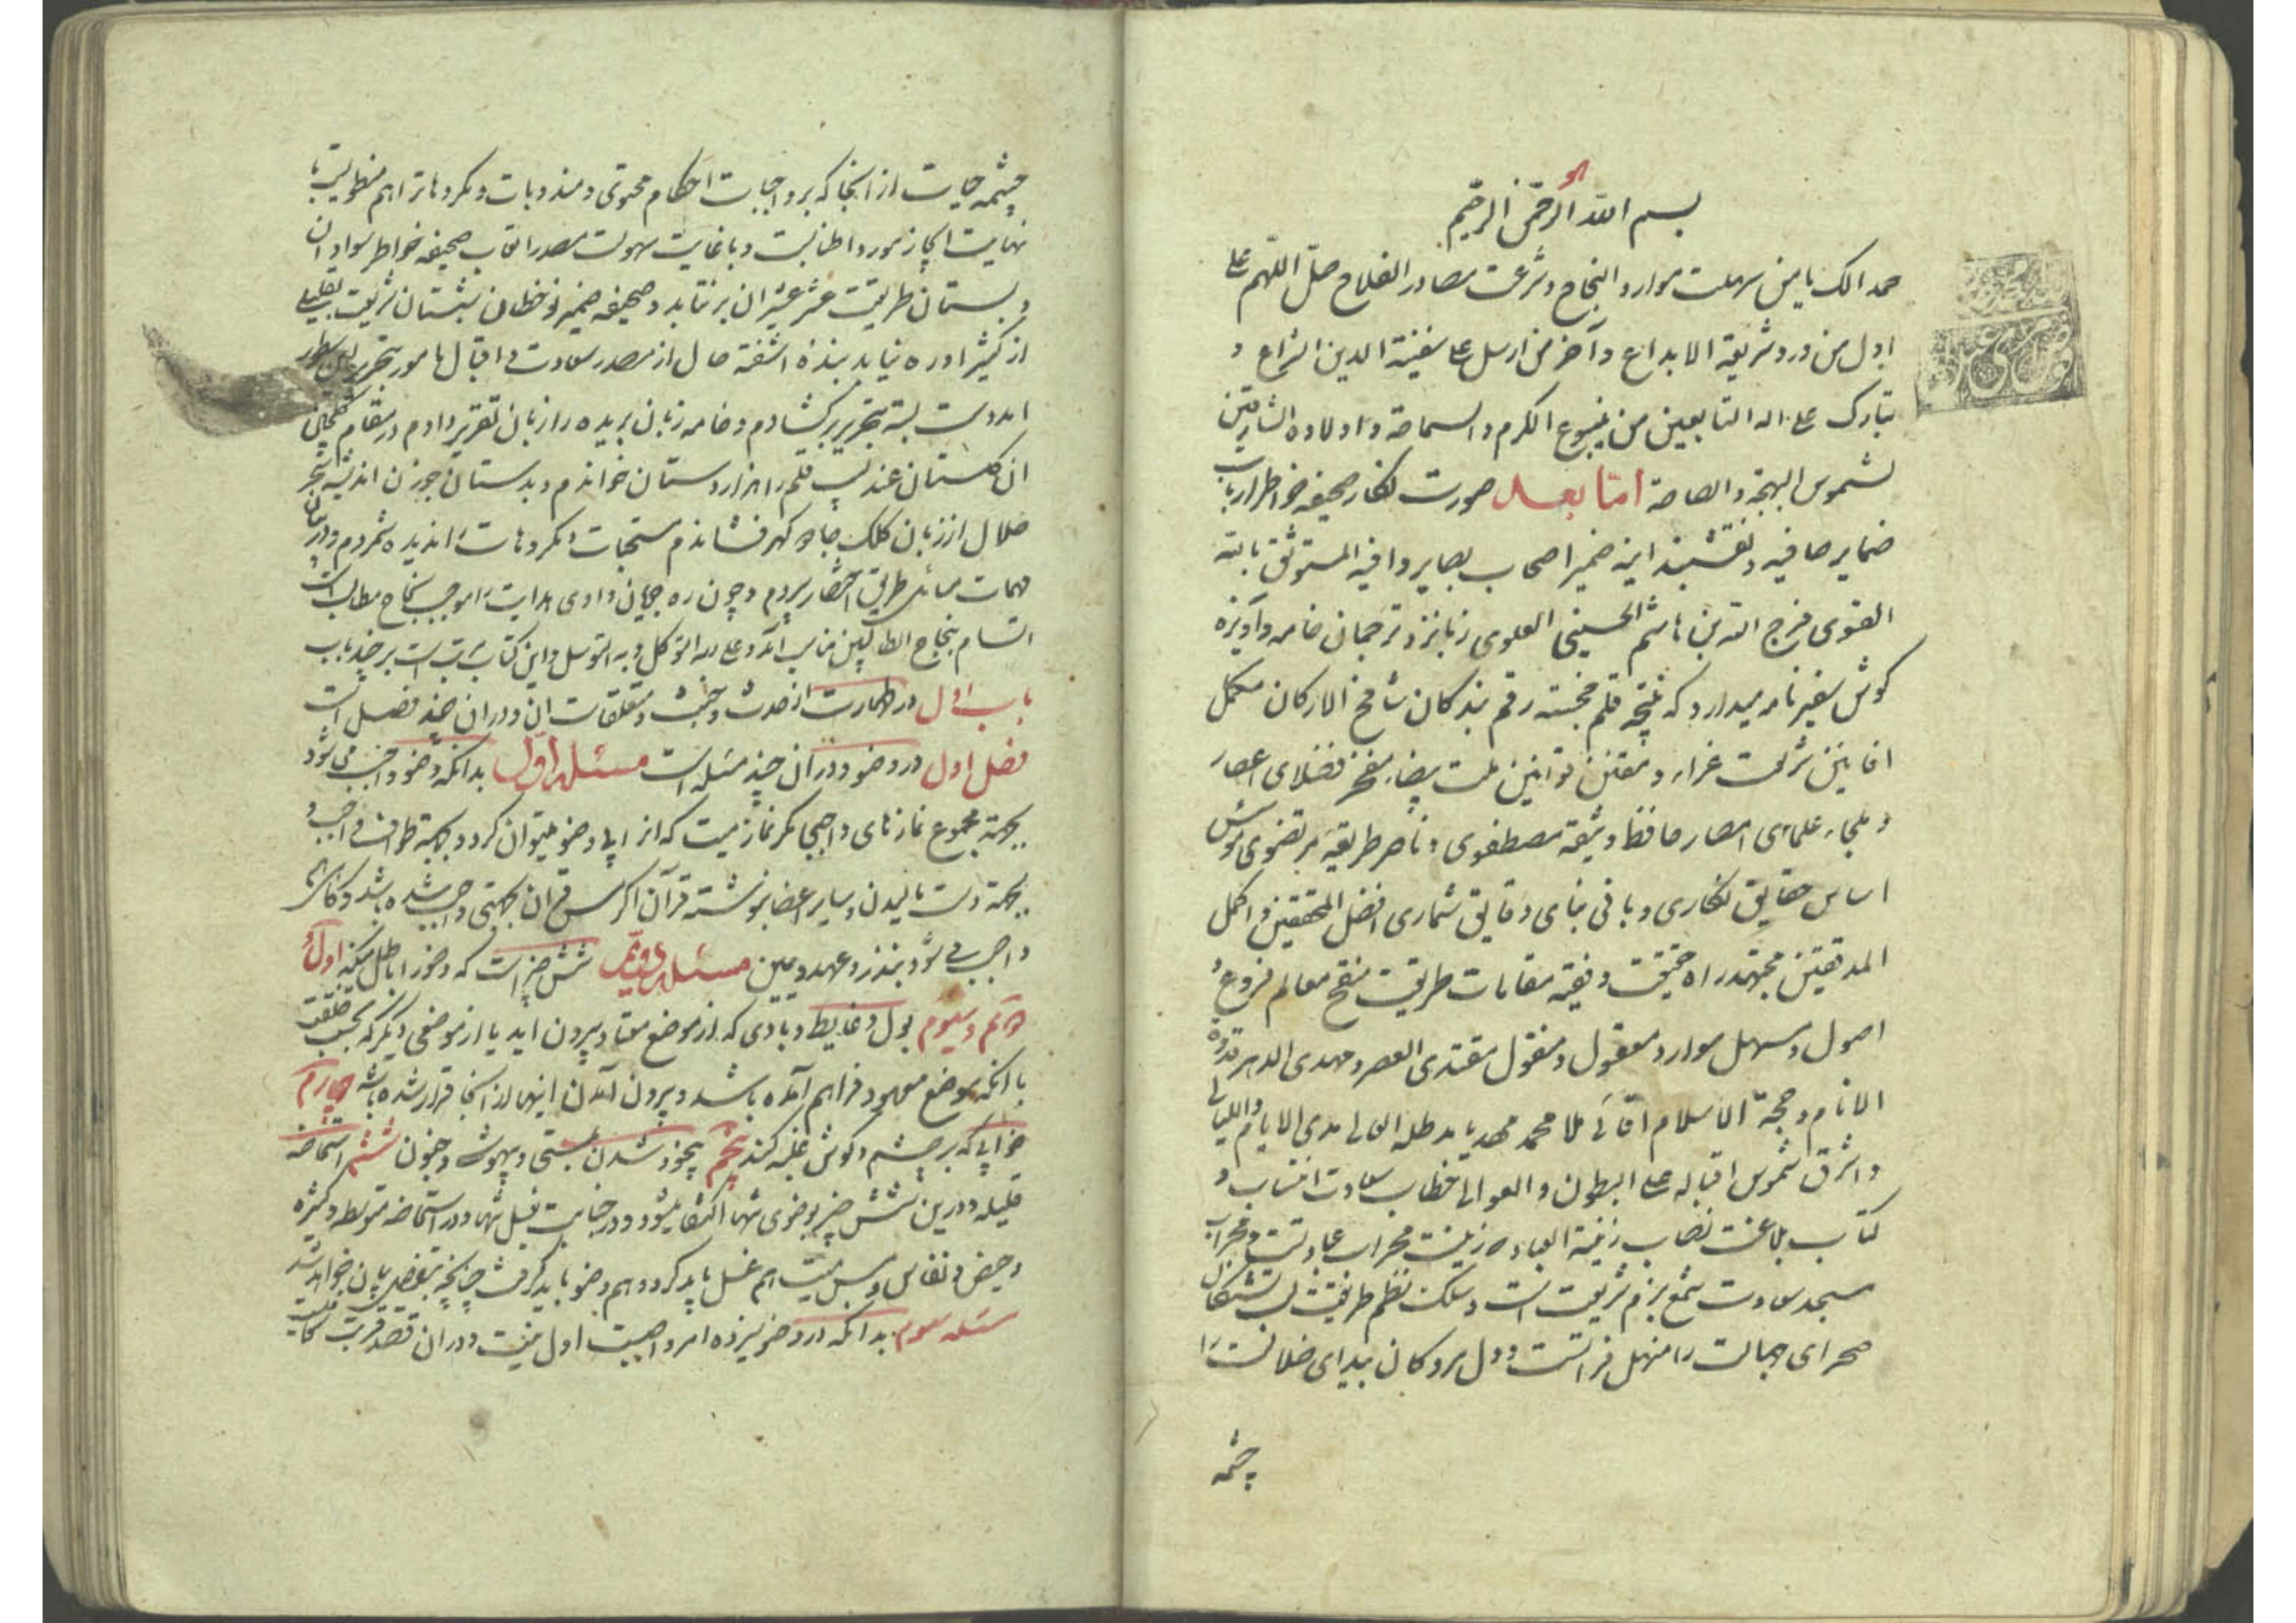 هو
بسم الله الرحمن الرحیم
حمدا لک یا من سهلت موارد النجاح و شرعت مصادر الفلاح صل اللهم علی
اول من ورد شریعة الابداع و آخر من ارسل علی سفینة الدین الشراع و
تبارک علی اله التابعین من ینبوع الکرم و السماحة و اولاده الشارقین
لشموس البهجة و الصباحة اما بعد صورت نکار صحیفه خواطر ارباب
ضمایر صافیه و نقشبند اینه ضمیر اصحاب بصایر وافیه المستوثق بالله
القوی فرج الله بن هاشم الحسینی العلوی زبانزد ترجمان خامه و آویزه
کوش سفیر نامه میدارد که نتیجه قلم خجسته رقم بندکان شامخ الارکان مکمل
افانین شریعت غراء و مقنن قوانین ملت بیضاء مفخر فضلای اعصار
و ملجاء علمای امصار حافظ وثیقه مصطفوی و ناصر طریقه مرتضوی موسس
اساس حقایق نکاری و بانی بنای دقایق شماری افضل المحققین و اکمل
المدققین مجتهد راه حقیقت و فقیه مقامات طریقت منقح معالم فروع و
اصول و مسهل موارد معقول و منقول مقتدی العصر و مهدی الدهر قدوة
الانام و حجة الاسلام اقائی ملا محمد مهدیا مد ظله العالی مدی الایام و اللیالی
و اشرق شموس اقباله علی البطون و العوالی خطاب سعادت انتساب و
کتاب بلاغت نصاب زینة العباد که زینت محراب عبادتست و محراب
مسجد سعادت شمع بزم شریعت است و سلک نظم طریقت لب تشنکان
صحرای جهالت را منهل فراتست و دل مردکان بیدای ضلالت را
چشمه
چشمه حیات از انجا که بر واجبات احکام محتوی و مندوبات و مکروهات را هم منطویست با
نهایت ایجاز مورد اطنابست و با غایت سهولت مصدر اتعاب صحیفه خواطر سواد ان
دبستان طریقت عشر عشیر ان بر نتابد و صحیفه ضمیر نو خطان شبستان شریعت بقلیلی
از کثیر اوره نیابد بنده اشفته حال از مصدر سعادت و اقبال مامور بتحریر این سطور
امد دست بسته بتحریر برکشادم و خامه زبان بریده را زبان تقریر دادم در مقام کلچینی
ان کلستان عندلیب قلم را هزار دستان خواندم و بدستان جوزن اندیشه سحر
حلال از زبان کلک جادو کهر فشاندم مستحبات و مکروهات را ندیده شمردم و در بیان
مهمات مسائل طریق اختصار سپردم و چون ره جویان وادی هدایت را موجب نجاح مطالب است
اتسام بنجاح الطالبین مناسب آمد و علی الله التوکل و به التوسل و این کتاب مرتب است بر چند باب
باب اول در طهارت از حدث و خبث و متعلقات ان و در ان چند فصل است
فصل اول در وضو و در ان چند مسئله است مسئله اول بدانکه وضو واجب می شود
بجهة مجموع نمازهای واجبی مکر نماز میت که انرا بی وضو میتوان کرد و بجهة طواف واجب و
بجهة دست مالیدن و سایر اعضا بنوشته قرآن اکر مس قران بجهتی واجب شده باشد و کاهی
واجب می شود بنذر و عهد و یمین مسئله دویم شش چیز است که وضو را باطل میکند اول و
دویم و سیوم بول و غایط و بادی که از موضع معتاد بیرون اید یا از موضعی دیکر که بحسب خلقت
با انکه موضع معهود فراهم آمده باشد و بیرون آمدن اینها از انجا قرار شده باشد چهارم
خوابی که بر چشم و کوش غلبه کند پنجم بیخود شدن بمستی و بیهوشی و جنون ششم استحاضه
قلیله و درین شش چیز بوضوی تنها اکتفا میشود و در جنابت بغسل تنها و در استحاضه متوسطه و کثیره
و حیض و نفاس و مس میت هم غسل باید کرد و هم وضو باید کرفت چنانچه بتفصیل بیان خواهد شد
مسئله سوم بدانکه در وضو سیزده امر واجبست اول نیت و در ان قصد قربت کافیست